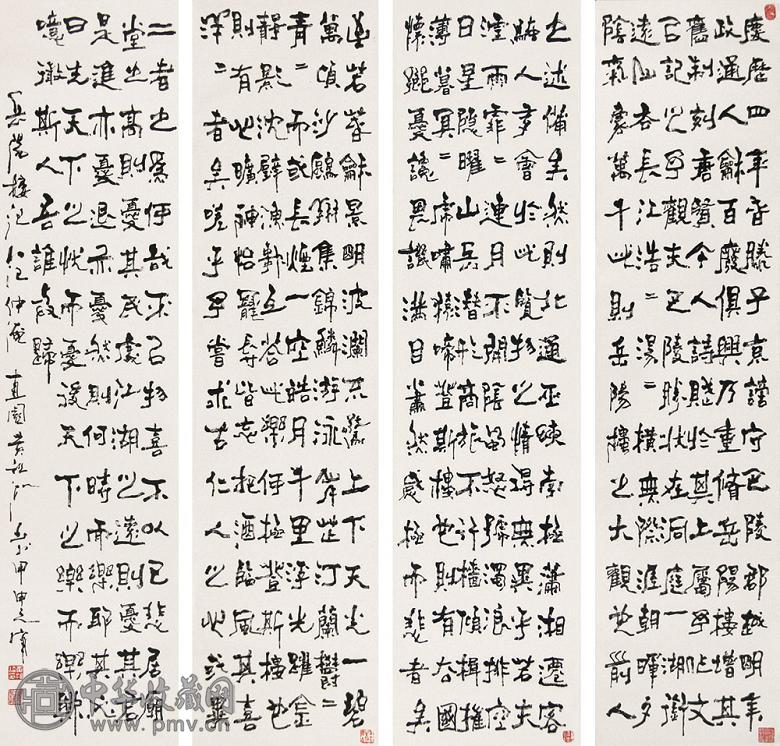 慶歷四年春滕子京謫守巴陵郡越明年
政通人龢百廢俱興乃重脩岳陽樓增其
舊制刻唐賢今人詩賦於其上屬予作文
以記之予觀夫巴陵勝狀在洞庭一湖銜
遠山吞長江浩二湯二橫無際涯朝暉夕
陰氣象萬千此則岳陽樓之大觀也前人
之述備矣然則北通巫峽南極瀟湘遷客
騷人多會於此覽物之情得無異乎若夫
淫雨霏二連月不開陰風怒號濁浪排空
日星隱曜山岳潛形商旅不行檣傾楫摧
薄暮冥二虎嘯猿啼登斯樓也則有去國
懷鄉憂讒畏譏滿目蕭然感極而悲者矣
至若春龢景明波瀾不驚上下天光一碧
萬頃沙鷗翔集錦鱗游泳岸芷汀蘭鬱二
青二而或長煙一空皓月千里浮光躍金
靜影沈璧漁歌互答此樂何極登斯樓也
則有心曠神怡寵辱皆忘把酒臨風其喜
洋二者矣嗟乎予嘗求古仁人之心或異
二者之爲何哉不以物喜不以己悲居廟
堂之高則憂其民處江湖之遠則憂其君
是進亦憂退亦憂然則何時而樂耶其必
曰先天下之憂而憂後天下之樂而樂歟
噫微斯人吾誰與歸
岳陽樓記 甲申之
中华收藏网
www.pmv.cn